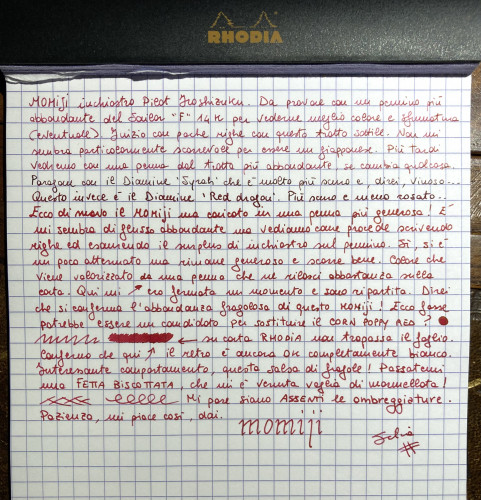 RHODIA
MOMIJI inchiostro Pilot Iroshizuku. Da provare con un pennino più
abbondante del Sailor "F" 14K per vederne meglio colore e sfumatura
(eventuale). Inizio con poche righe con questo tratto sottile. Non mi
sembra particolarmente scorrevole per essere un giapponese. Più tardi
vedremo con una penna dal tratto più abbondante, se cambia qualcosa.
Paragone con il Diamine 'Syrah' che è molto più scuro e, direi, vinoso...
Questo invece è il Diamine 'Red dragon'. Più scuro e meno rosato...
Ecco di nuovo il MOMIJI ma caricato in una penna più generosa! E
mi sembra di flusso abbondante ma vediamo come procede scrivendo
righe ed esaurendo il surplus di inchiostro sul pennino. Sì, si è
un poco attenuato ma rimane generoso e scorre bene. Colore che
viene valorizzato da una penna che ne rilasci abbastanza sulla
carta. Qui mi ↗ ero fermata un momento e sono ripartita. Direi
che si conferma l'abbondanza fragolosa di questo MOMIJI! Ecco forse
potrebbe essere un candidato per sostituire il CORN POPPY RED?
← su carta RHODIA non trapassa il foglio.
Confermo che qui ↗ il retro è ancora OK completamente bianco.
Interessante comportamento, questa salsa di fragole! Passatemi
una FETTA BISCOTTATA, che mi è venuta voglia di marmellata!
Mi pare siano ASSENTI le ombreggiature.
Pazienza, mi piace così, dai.
momiji